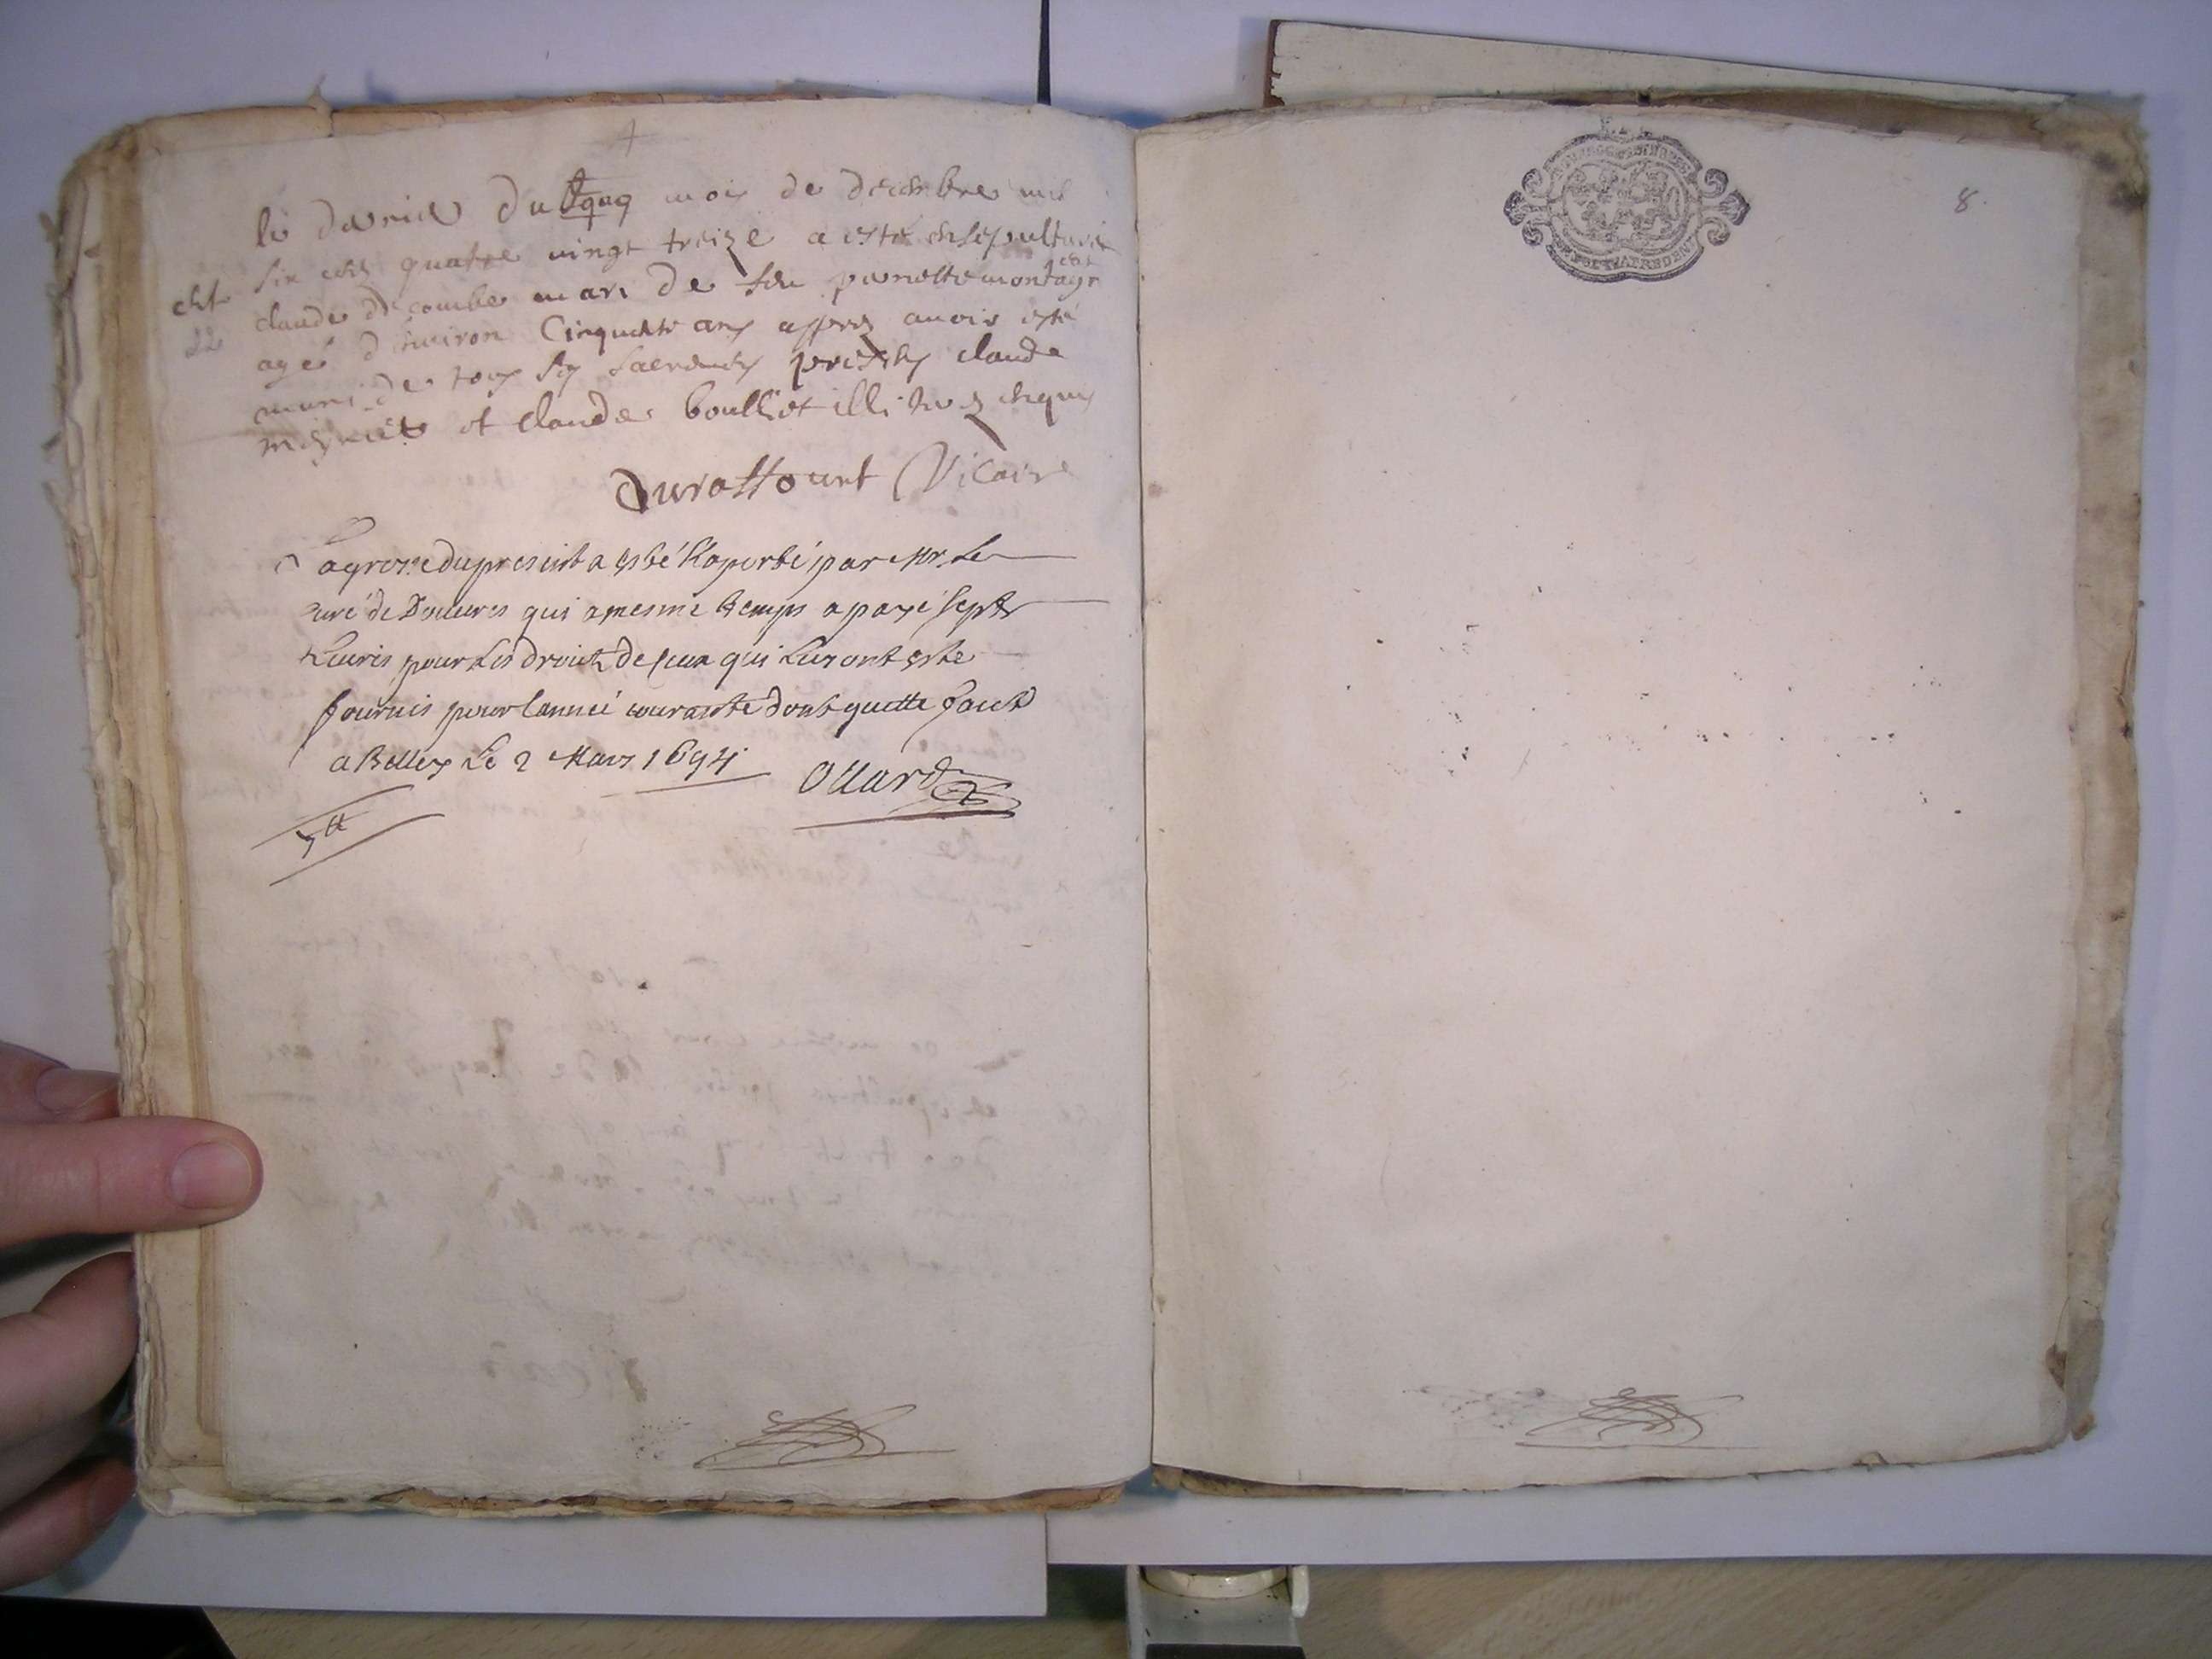 le dernier du mois de decembre mil
six cens quatre vingt treize a esté ensepulturé
claude decombe mari de feu pernette montagn
agé d'environ Cinquente ans appres avoir esté
muni de tous ses sacremens presens claude
et claude boulliot illiterez enquis
Durattourt Vicaire
La grosse du present a esté Raporté par Mr Le
curé de Douvres qui a mesme temps a payé sept
Livres pour Les droits de ceux qui Luy ont esté
fournis pour l'année courante dont quitte faict
a Belley Le 2 Mars 1694
Ollard
7 tt
8.